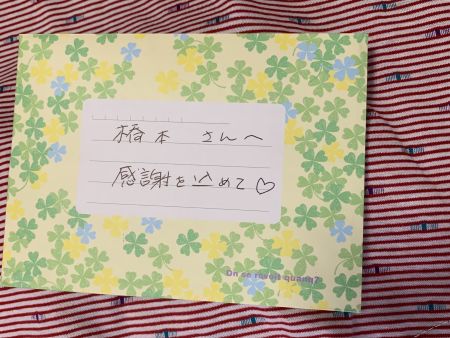 橋本 さんへ
感謝を込めて♡
On se revoit quand?